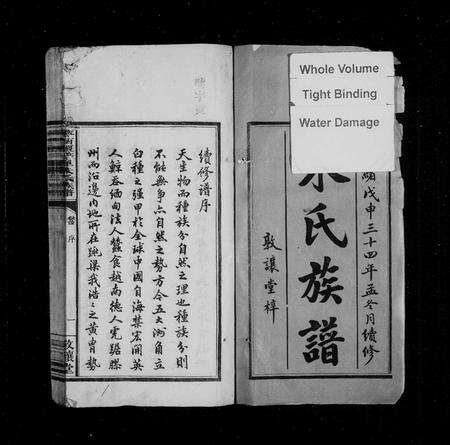 Whole Volume
Tight Binding
Water Damage
戊申三十四年孟冬月續修
氏族譜
敦讓堂梓
續修譜序
天生物而種族分自然之理也種族分則
不能無爭亦自然之勢方今五大洲角立
白種之强甲於全球中國自海禁宏開英
人鯨吞緬甸法人蠶食越南德人虎踞膠
州而沿邊內地所在跳梁我浩之之黃冑勢
序
一
敦讓堂